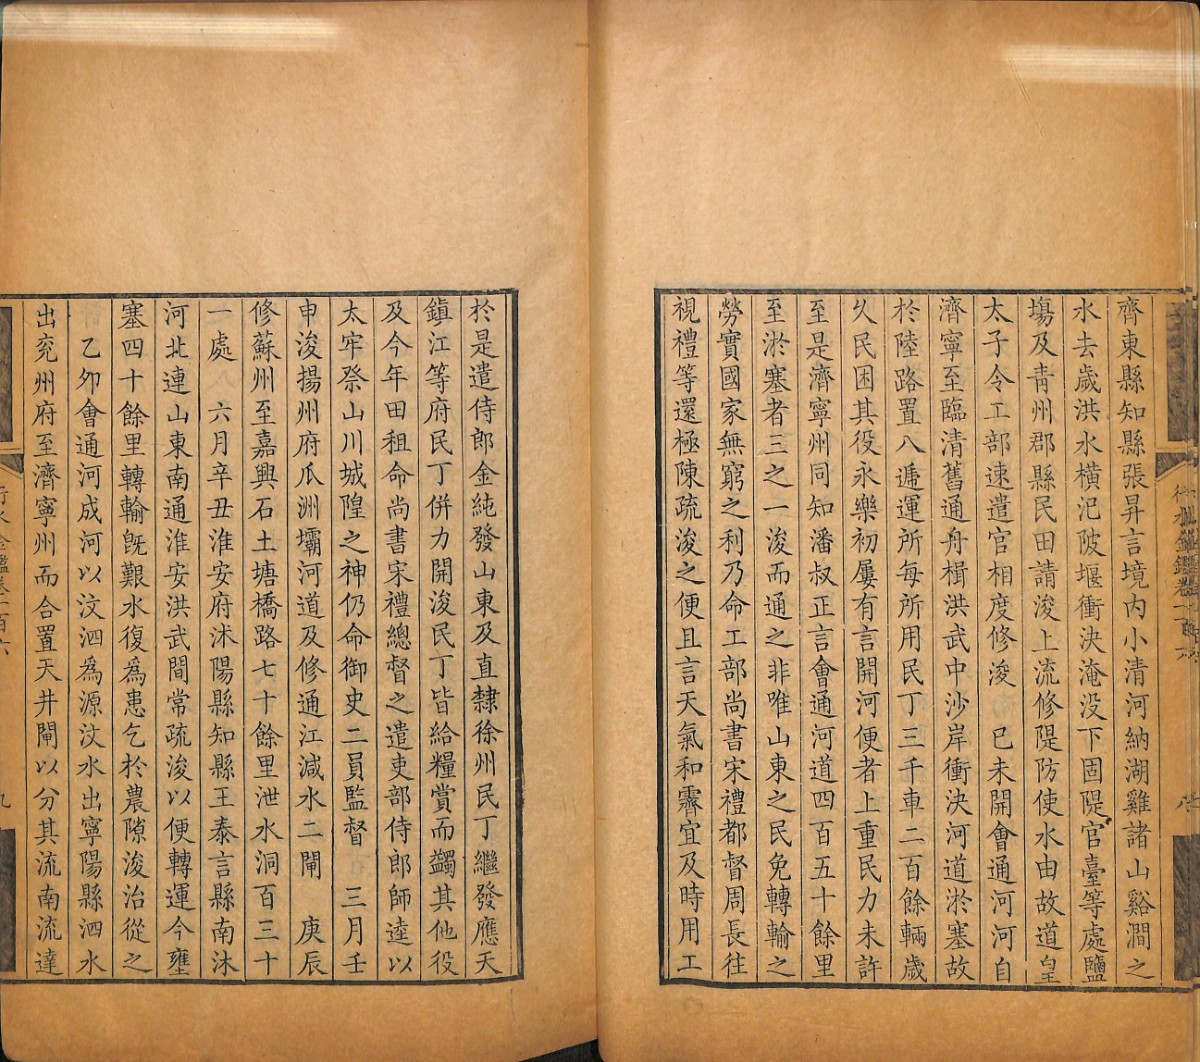 齊東縣知縣張昇言境內小清河納湖雞諸山谿澗之
水去歲洪水橫汜陂堰衝決淹没下固隄官臺等處鹽
塲及青州郡縣民田請浚上流修隄防使水由故道皇
太子令工部速遣官相度修浚　已未開會通河河自
濟寧至臨清舊通舟楫洪武中沙岸衝決河道淤塞故
於陸路置八遞運所每所用民丁三千車二百餘輛歲
乆民困其役永樂初屢有言開河便者上重民力未許
至是濟寧州同知潘叔正言會通河道四百五十餘里
至淤塞者三之一浚而通之非唯山東之民免轉輸之
勞實國家無窮之利乃命工部尚書宋禮都督周長往
視禮等還極陳疏浚之便且言天氣和霽宜及時用工
於是遣侍郎金純發山東及直隸徐州民丁繼發應天
鎮江等府民丁併力開浚民丁皆給糧賞而蠲其他役
及今年田租命尚書宋禮總督之遣吏部侍郎師逵以
太牢祭山川城隍之神仍命御史二員監督　三月壬
申浚揚州府瓜洲壩河道及修通江減水二閘　庚辰
修蘇州至嘉興石土塘橋路七十餘里泄水洞百三十
一處　六月辛丑淮安府沭陽縣知縣王泰言縣南沭
河北連山東南通淮安洪武間常疏浚以便轉運今壅
塞四十餘里轉輸旣艱水復爲患乞於農隙浚治從之
乙夘會通河成河以汶泗爲源汶水出寧陽縣泗水
出兖州府至濟寧州而合置天井閘以分其流南流達
行水金鑑卷一百六
九